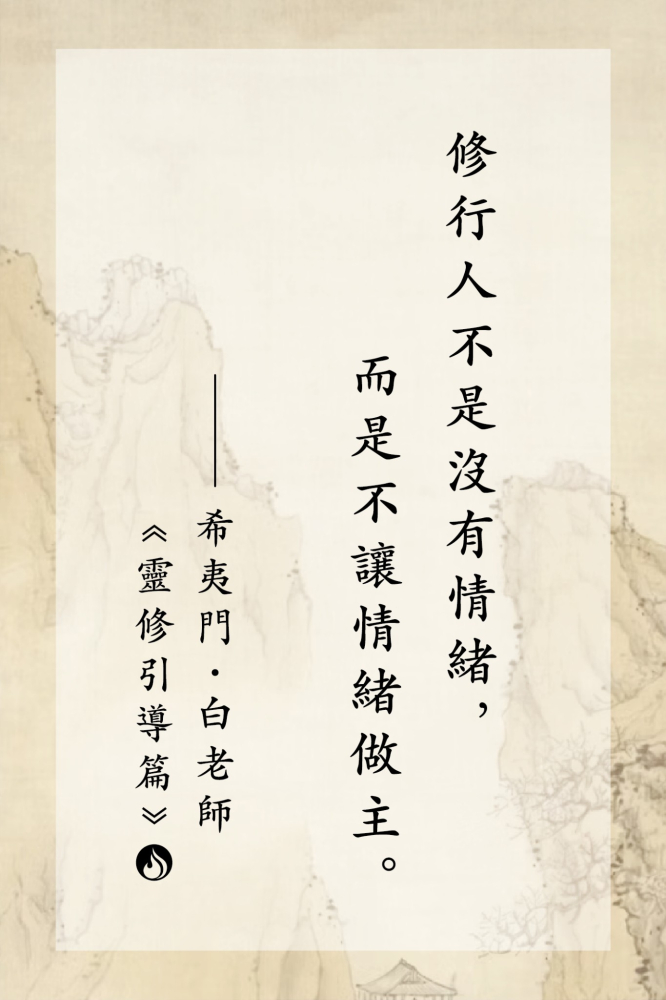 修行人不是沒有情緒，
而是不讓情緒做主。
——希夷門·白老師
《靈修引導篇》